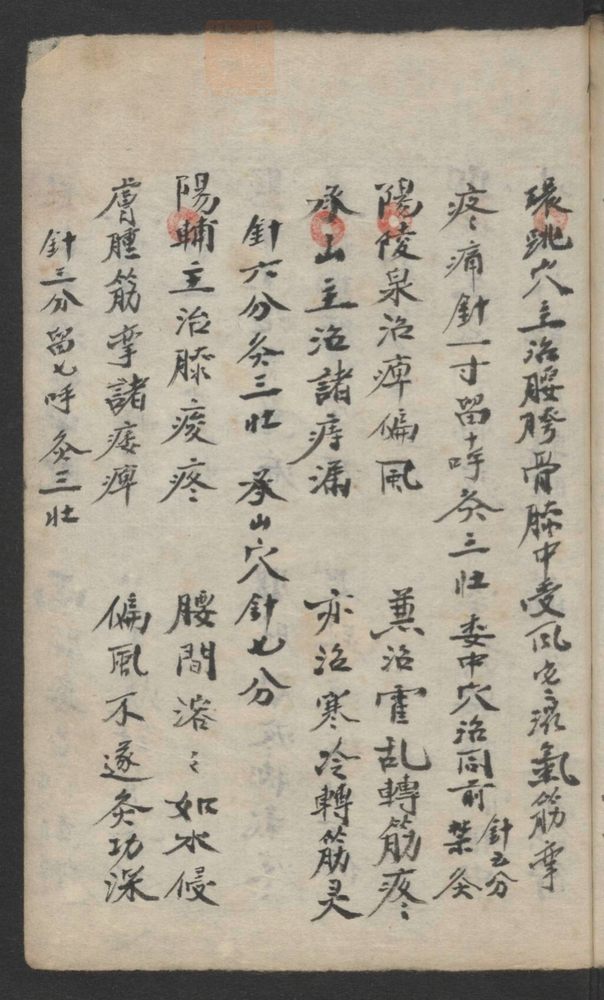 環跳穴主治腰胯骨膝中受風寒濕氣筋攣
疼痛針一寸留十呼灸三壯 委中穴治同前 針五分 禁灸
陽陵泉治痺偏風 兼治霍乱轉筋疼
承山主治諸痔漏 亦治寒冷轉筋灵
針六分灸三壯 承山穴針七分
陽輔主治膝痠疼 腰間溶〻如水侵
膚腫筋攣諸痿痺 偏風不遂灸功深
針三分留七呼灸三壯